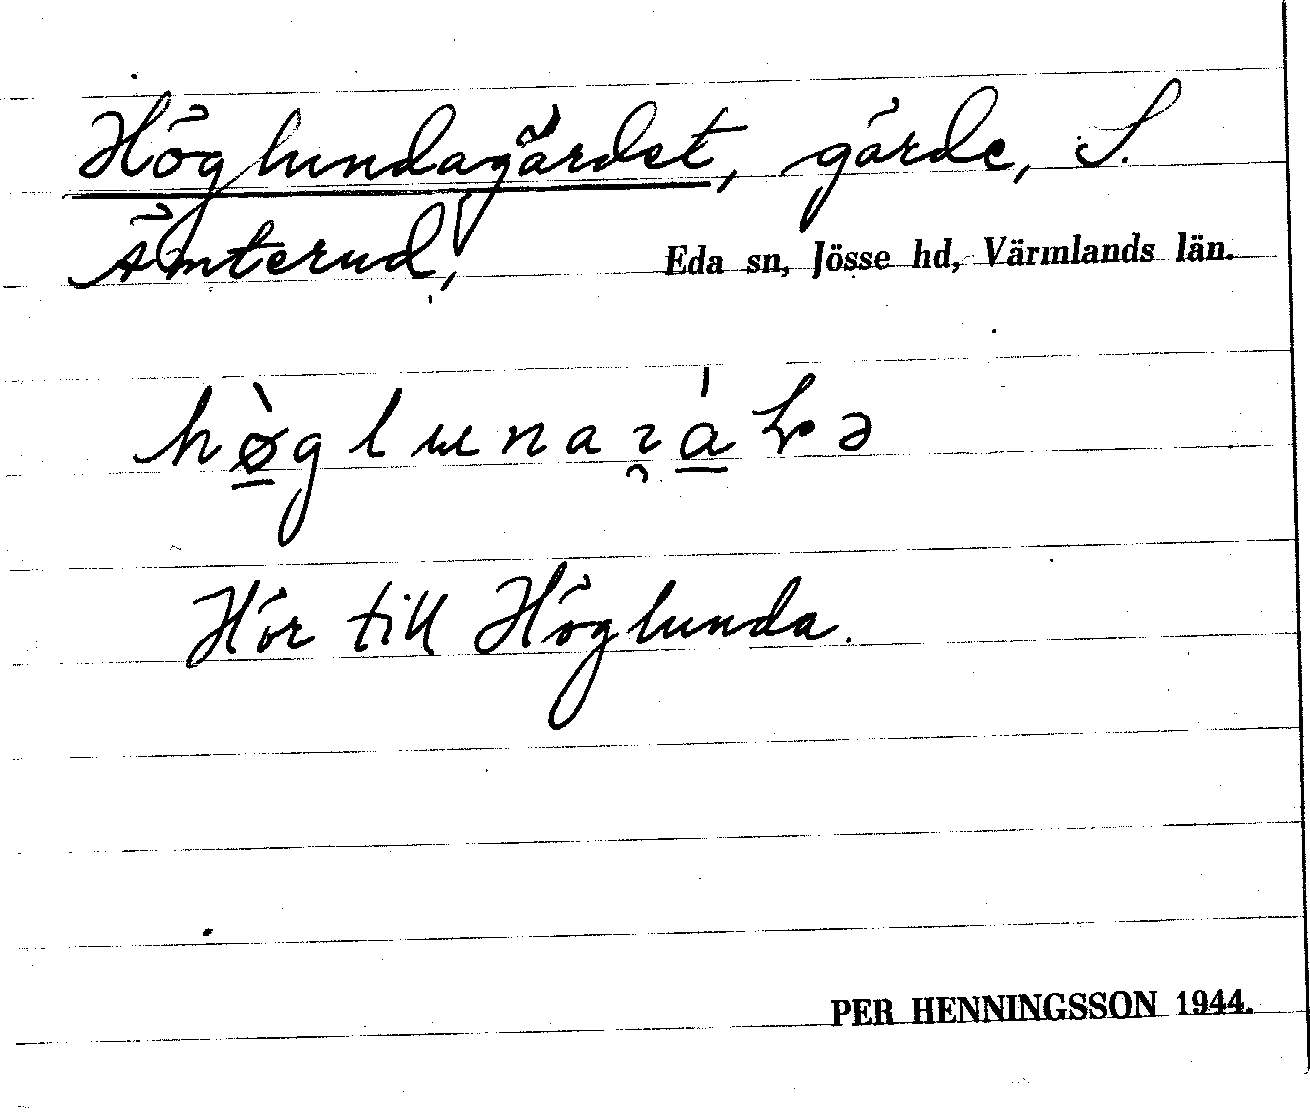 Höglundagärdet, gärde, S.
Ämterud, Eda sn, Jösse hd, Värmlands län.
Hör till Höglunda.
PER HENNINGSSON 1944.